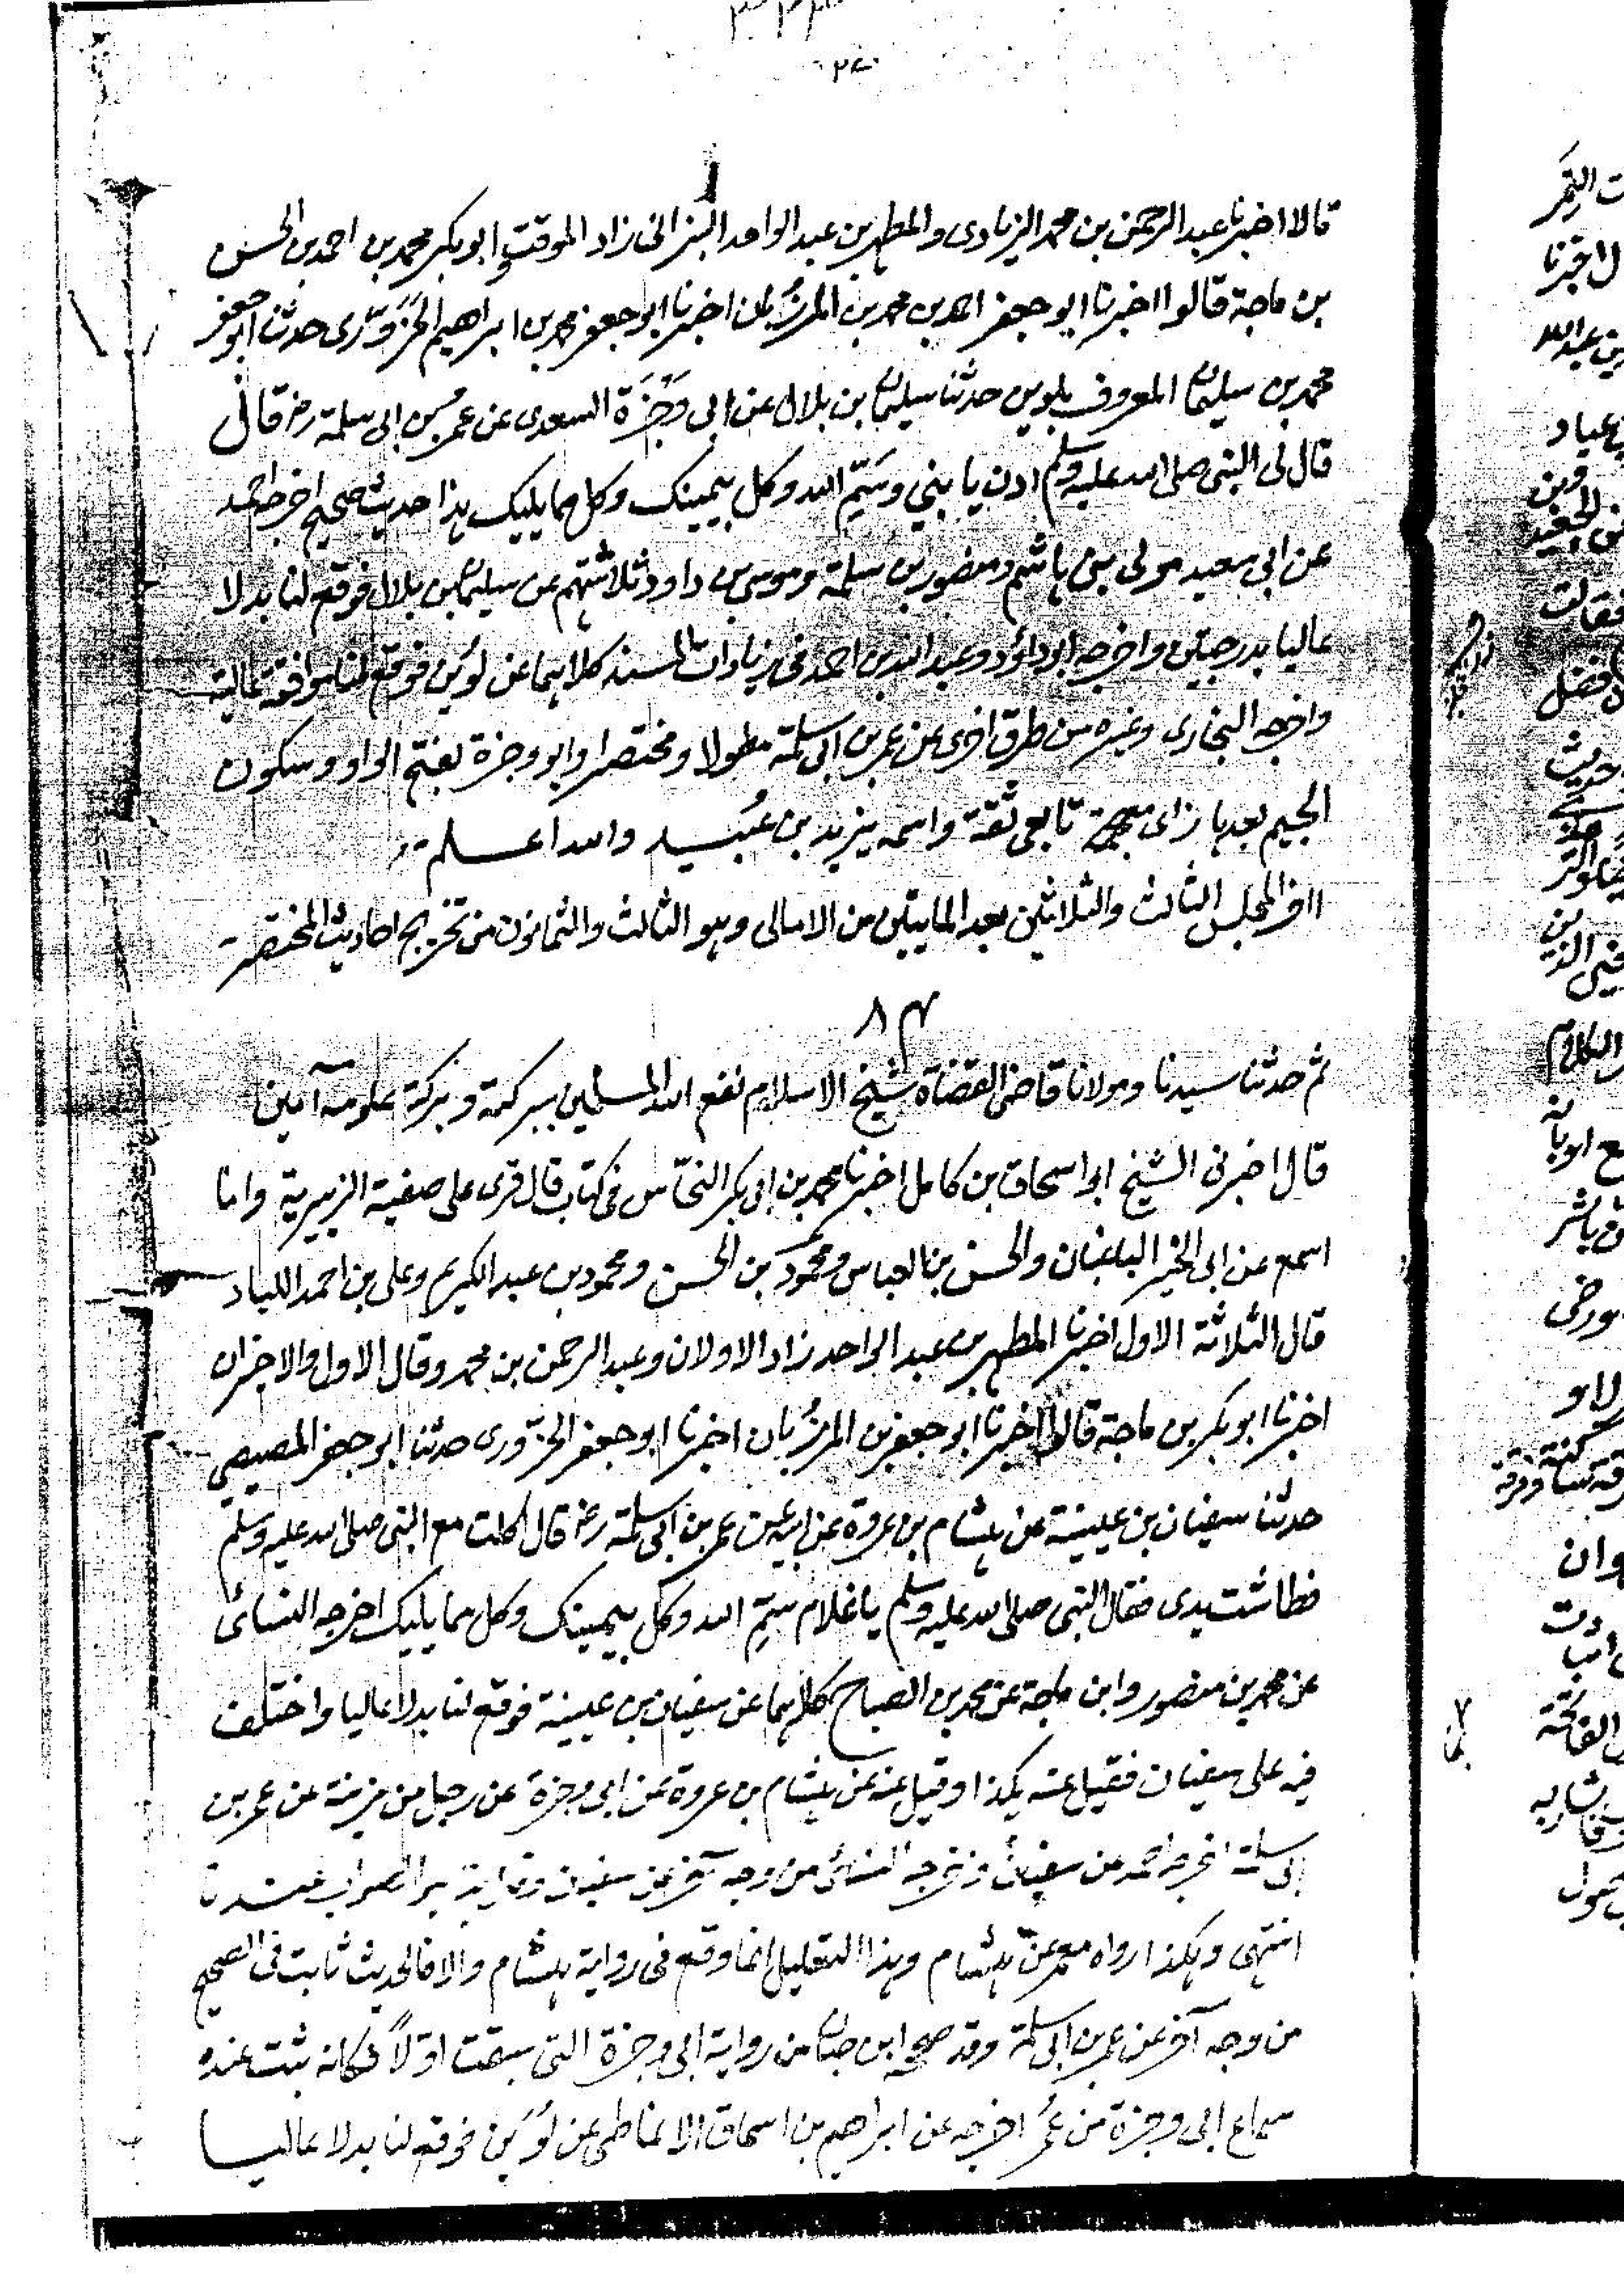 ٢٧٠
قالا اخبرنا عبد الرحمن بن محمد الزيادى والمطهر بن عبد الواحد البزانى زاد الموقت وابو بكر محمد بن احمد بن الحسن
بن ماجة قالوا اخبرنا ابو جعفر احمد بن محمد بن المرزُبان اخبرنا ابو جعفر محمد بن ابراهيم الحَزَوَّرى حدثنا ابو جعفر
محمد بن سليمان المعروف بلوين حدثنا سليمان بن بلال عن ابى وَجْزَة السعدى عن عمر بن ابى سلمة رض قال
قال لى النبى صلى الله عليه وسلم ادن يا بني وسَمِّ الله وكل بيمينك وكل مما يليك هذا حديث صحيح اخرجه احمد
عن ابى سعيد مولى بنى هاشم ومنصور بن سلمة وموسى بن داود ثلاثتهم عن سليمان بن بلال فوقع لنا بدلا
عاليا بدرجتين واخرجه ابو داؤد وعبد الله بن احمد فى زيادات المسند كلاهما عن لوَين فوقع لنا موافقة عالية
واخرجه البخارى وغيره من طرق اخرى عن عمر بن ابى سلمة مطولا ومختصرا وابو وجزة بفتح الواو وسكون
الجيم بعدها زاى معجمة تابعى ثقة واسمه يزيد بن عُبَيد والله اعلم
اخر المجلس الثالث والثلاثين بعد المايتين من الامالى وهو الثالث والثمانون من تخريج احاديث المختصر
٨٤
ثم حدثنا سيدنا ومولانا قاضى القضاة شيخ الاسلام نفع الله المسلمين ببركته وبركة علومه آمين
قال اخبرنى الشيخ ابو اسحاق بن كامل اخبرنا محمد بن ابى بكر النحّاس فى كتابه قال قرى على صفية الزبيرية وانا
اسمع عن ابى الخير الباغبان والحسن بن العباس ومحمود بن الحسن ومحمود بن عبد الكريم وعلى بن احمد اللباد
قال الثلاثة الاول اخبرنا المطهر بن عبد الواحد زاد الاولان وعبد الرحمن بن محمد وقال الاول والاخيران
اخبرنا ابو بكر بن ماجة قالوا اخبرنا ابو جعفر بن المرزُبان اخبرنا ابو جعفر الحزَوَّرى حدثنا ابو جعفر المصيصى
حدثنا سفيان بن عيينة عن هشام بن عروة عن ابيه عن عمر بن ابى سلمة رض قال اكلت مع النبى صلى الله عليه وسلم
فطاشت يدى فقال النبى صلى الله عليه وسلم يا غلام سَمِّ الله وكل بيمينك وكل مما يليك اخرجه النسائى
عن محمد بن منصور وابن ماجة عن محمد بن الصباح كلاهما عن سفيان بن عيينة فوقع لنا بدلا عاليا واختلف
فيه على سفيان فقيل عنه هكذا وقيل عنه عن هشام بن عروة عن ابى وجزة عن رجل من مزينة عن عمر بن
ابى سلمة اخرجه احمد عن سفيان واخرجه النسائى من وجه آخر عن سفيان وقال انه هو الصواب عندنا
انتهى وهكذا رواه معمر عن هشام وهذا التعليل انما وقع فى رواية هشام والا فالحديث ثابت فى الصحيح
من وجه آخر عن عمر بن ابى سلمة وقد صححه ابن حبان من رواية ابى وجزة التى سبقت اوّلاً فكانه ثبت عنده
سماع ابى وجزة من عُمر اخرجه عن ابراهيم بن اسحاق الانماطى عن لوَين فوقع لنا بدلا عاليا